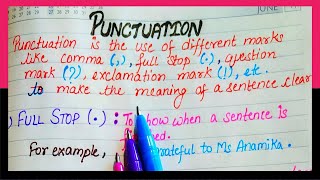 JUNE
PUNCTUATION
Punctuation is the use of different marks
like comma (,), full stop (.), question
mark (?), exclamation mark (!), etc.
to make the meaning of a sentence clear
) FULL STOP (.) : To show when a sentence is
For example, grateful to Ms Anamika.